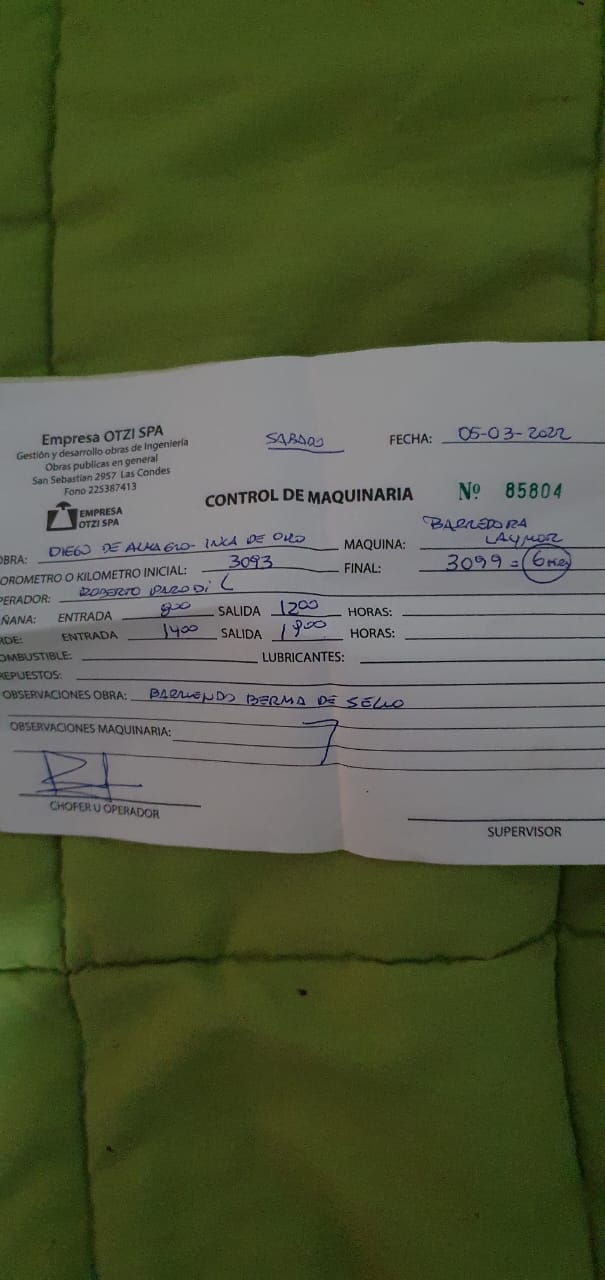 Empresa OTZI SPA
Gestión y desarrollo obras de Ingeniería
Obras publicas en general
San Sebastian 2957 Las Condes
Fono 225387413
EMPRESA
OTZI SPA
SABADO
FECHA: 05-03-2022
CONTROL DE MAQUINARIA Nº 85804
OBRA: DIEGO DE ALMAGRO - INCA DE ORO MAQUINA: BARREDORA LAYMOR
OROMETRO O KILOMETRO INICIAL: 3093 FINAL: 3099 = 6
PERADOR: ROBERTO PARODI C
ÑANA: ENTRADA 800 SALIDA 1200 HORAS:
RDE: ENTRADA 1400 SALIDA 1900 HORAS:
OMBUSTIBLE: LUBRICANTES:
REPUESTOS:
OBSERVACIONES OBRA: BARRIENDO BERMA DE SELLO
OBSERVACIONES MAQUINARIA:
CHOFER U OPERADOR
SUPERVISOR